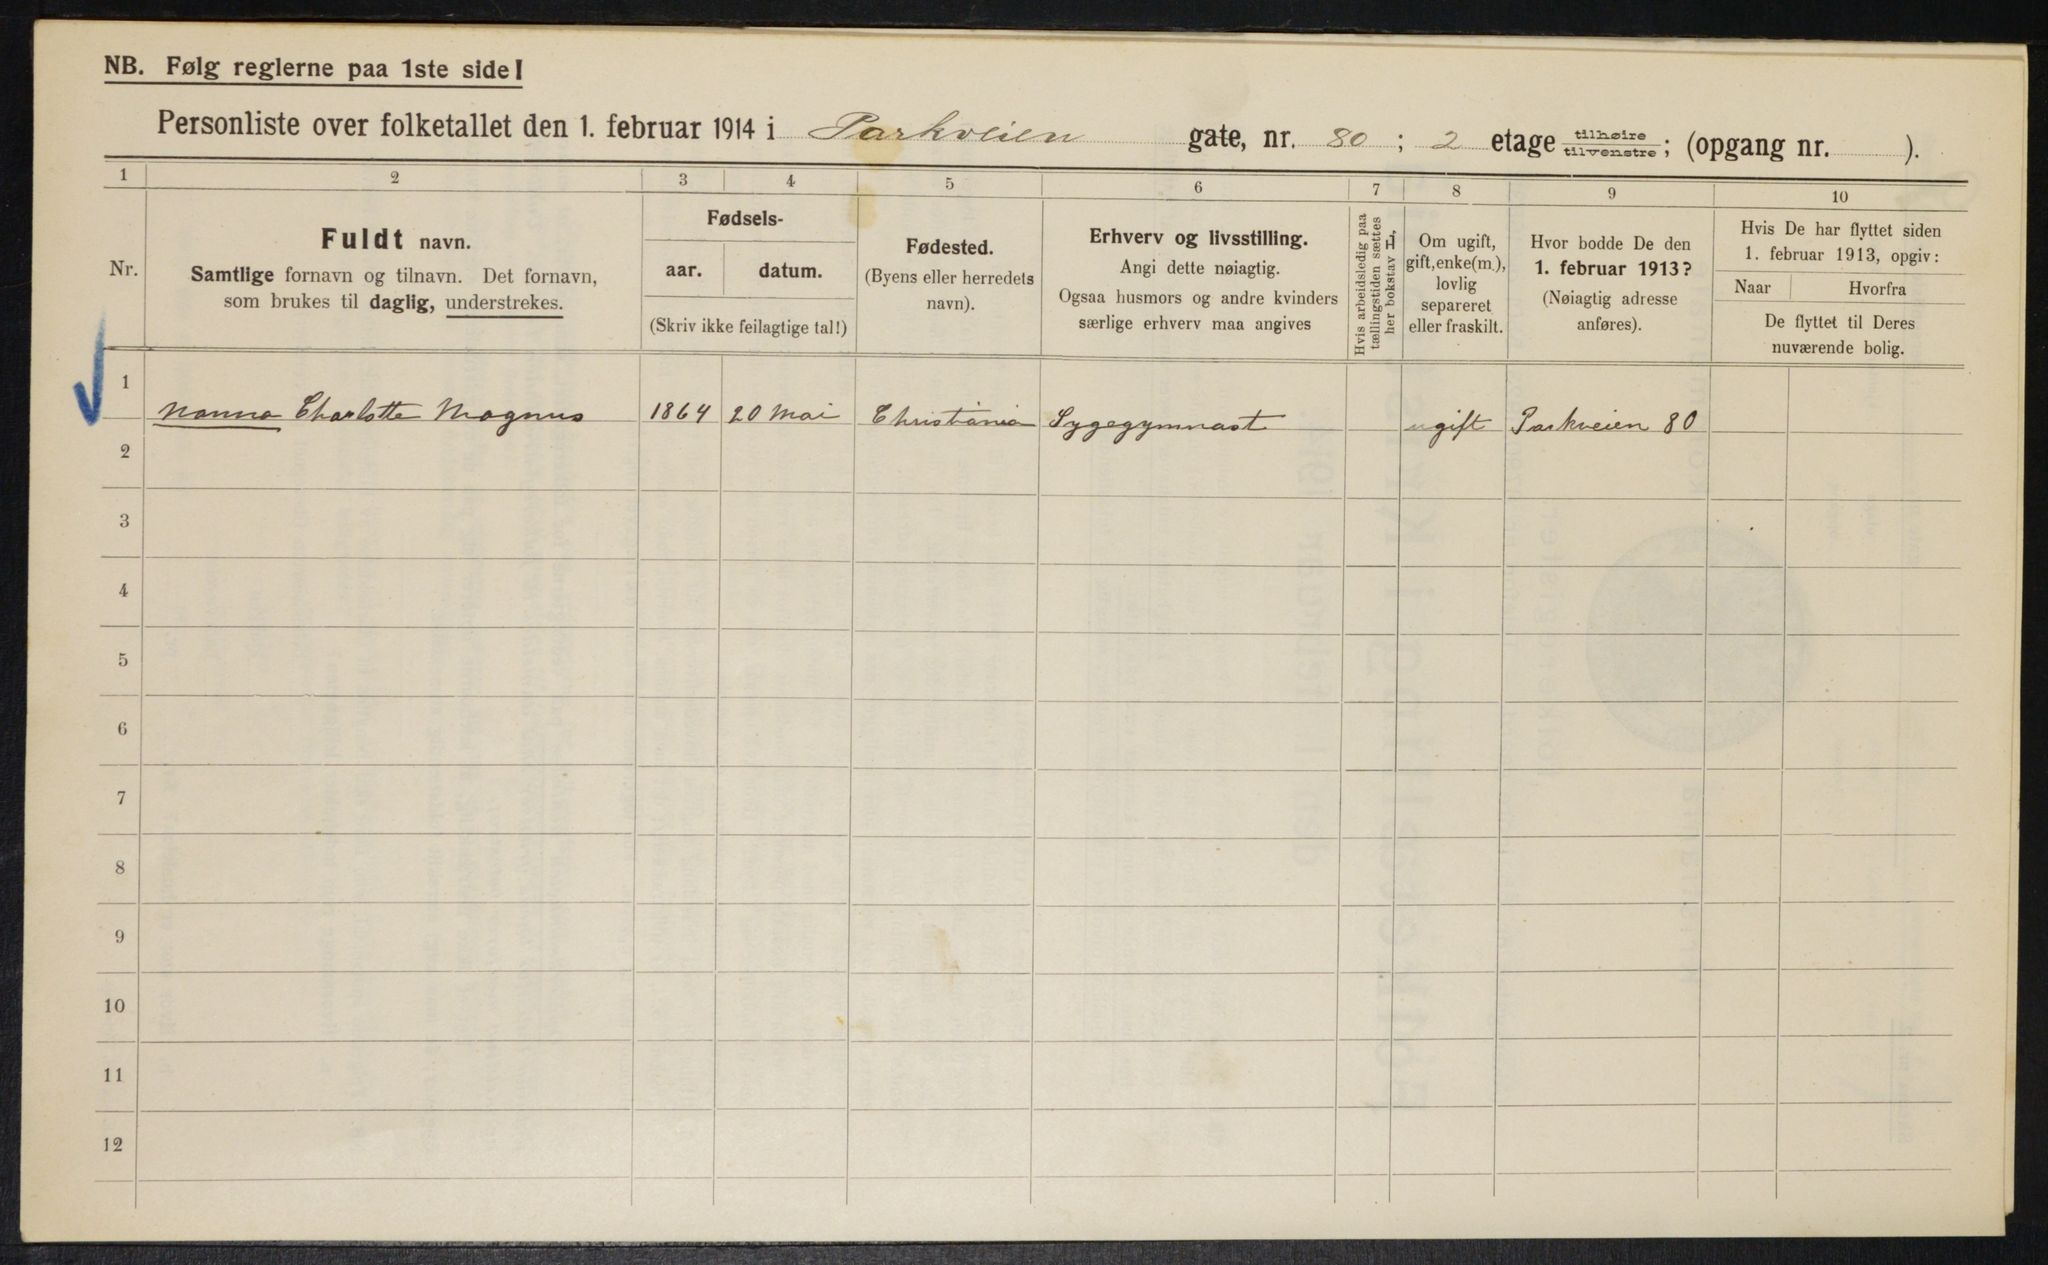 NB. Følg reglerne paa 1ste side!
Personliste over folketallet den 1. februar 1914 i Parkveien gate, nr. 80 ; 2 etage tilhøire tilvenstre; (opgang nr. ).
1 2 3 4 5 6 7 8 9 10
Nr.
Fuldt navn.
Samtlige fornavn og tilnavn. Det fornavn,
som brukes til daglig, understrekes.
Fødsels-
aar. datum.
(Skriv ikke feilagtige tal!)
Fødested.
(Byens eller herredets
navn).
Erhverv og livsstilling.
Angi dette nøiagtig.
Ogsaa husmors og andre kvinders
særlige erhverv maa angives
Hvis arbeidsledig paa
tællingstiden sættes
her bokstav L,
Om ugift,
gift, enke(m.),
lovlig
separeret
eller fraskilt.
Hvor bodde De den
1. februar 1913?
(Nøiagtig adresse
anføres).
Hvis De har flyttet siden
1. februar 1913, opgiv:
Naar Hvorfra
De flyttet til Deres
nuværende bolig.
1 Nanna Charlotte Magnus 1864 20 Mai Christiania Sygegymnast ugift Parkveien 80
2
3
4
5
6
7
8
9
10
11
12